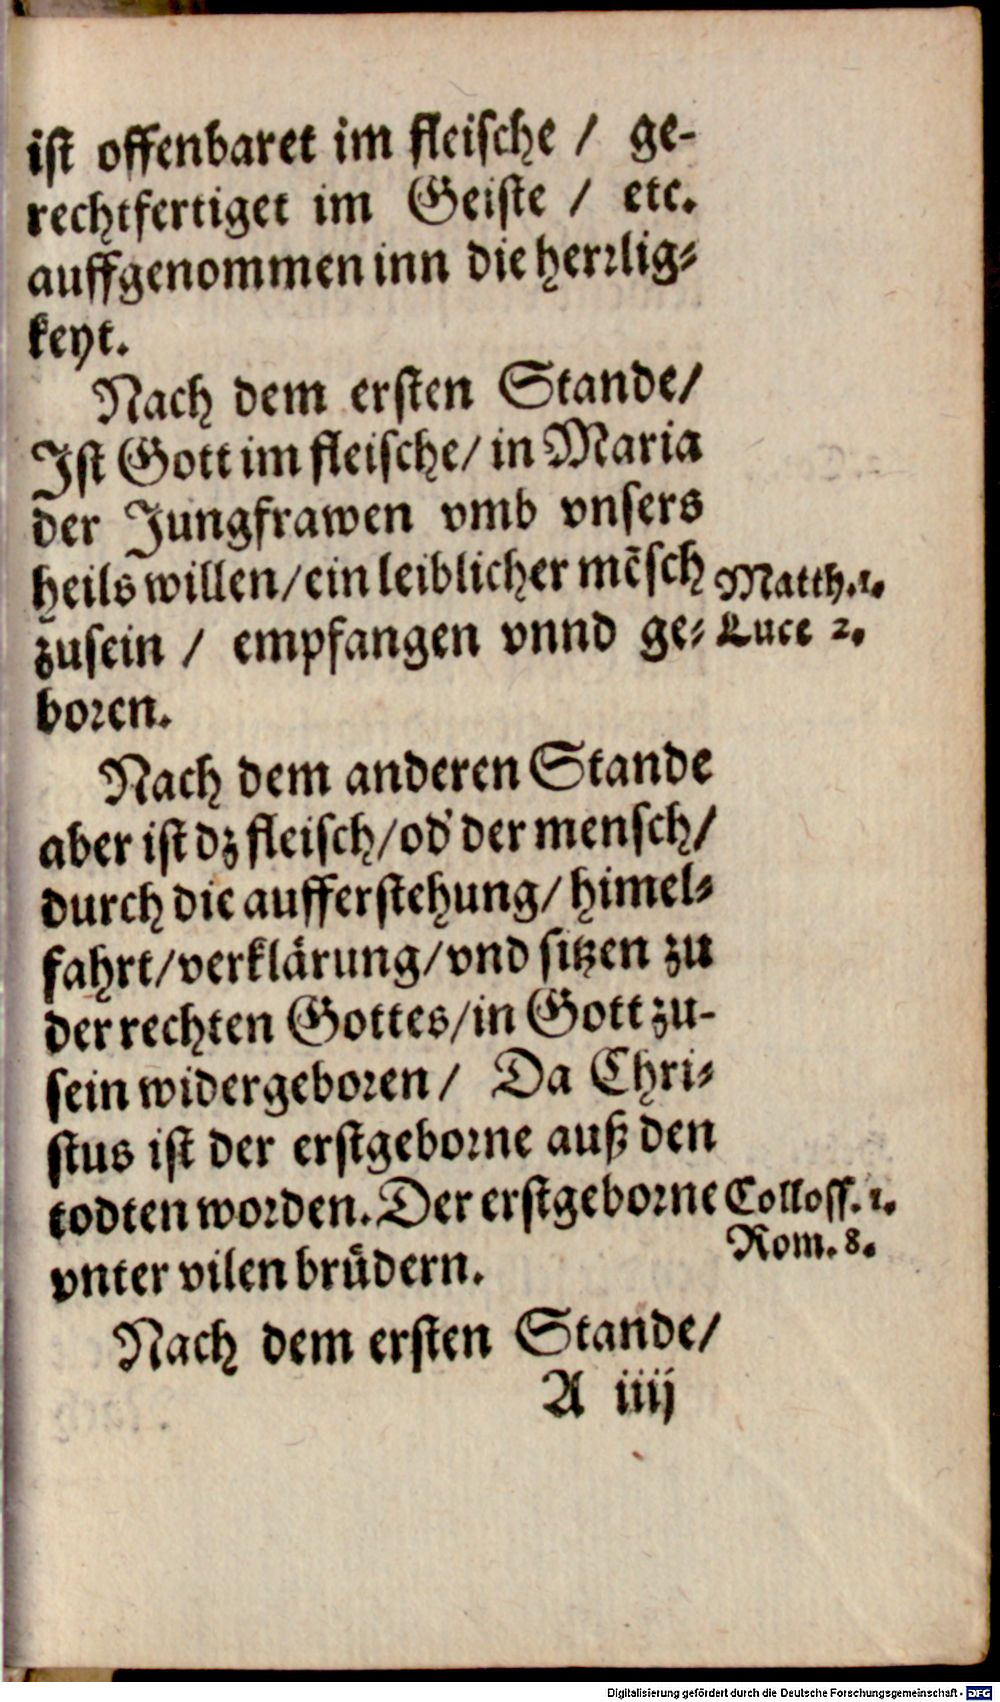 ist offenbaret im fleische / ge-
rechtfertiget im Geiste / etc.
auffgenommen inn die herrlig-
keyt.
Nach dem ersten Stande/
Ist Gott im fleische/ in Maria
der Jungfrawen vmb vnsers
heils willen/ein leiblicher mēsch
zusein / empfangen vnnd ge-
boren.
Matth.1.
Luce 2.
Nach dem anderen Stande
aber ist dz fleisch/od' der mensch/
durch die aufferstehung/ himel-
fahrt/verklärung/vnd sitzen zu
der rechten Gottes/in Gott zu-
sein widergeboren/ Da Chri-
stus ist der erstgeborne auß den
todten worden. Der erstgeborne
vnter vilen brüdern.
Colloss. 1.
Rom. 8.
Nach dem ersten Stande/
A iiij
Digitalisierung gefördert durch die Deutsche Forschungsgemeinschaft - DFG